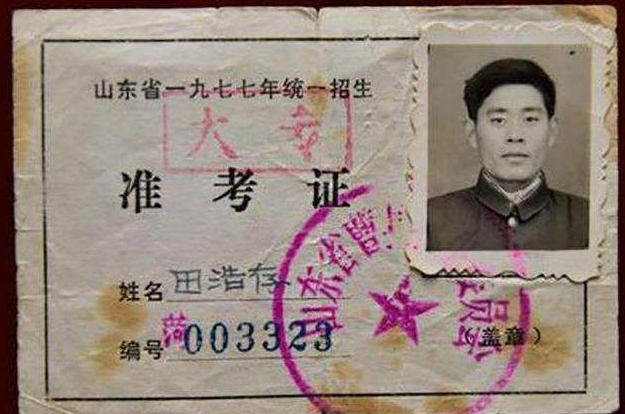 山东省一九七七年统一招生
大专
准考证
姓名 田浩存
编号 菏003323
山东省
员会
(盖章)